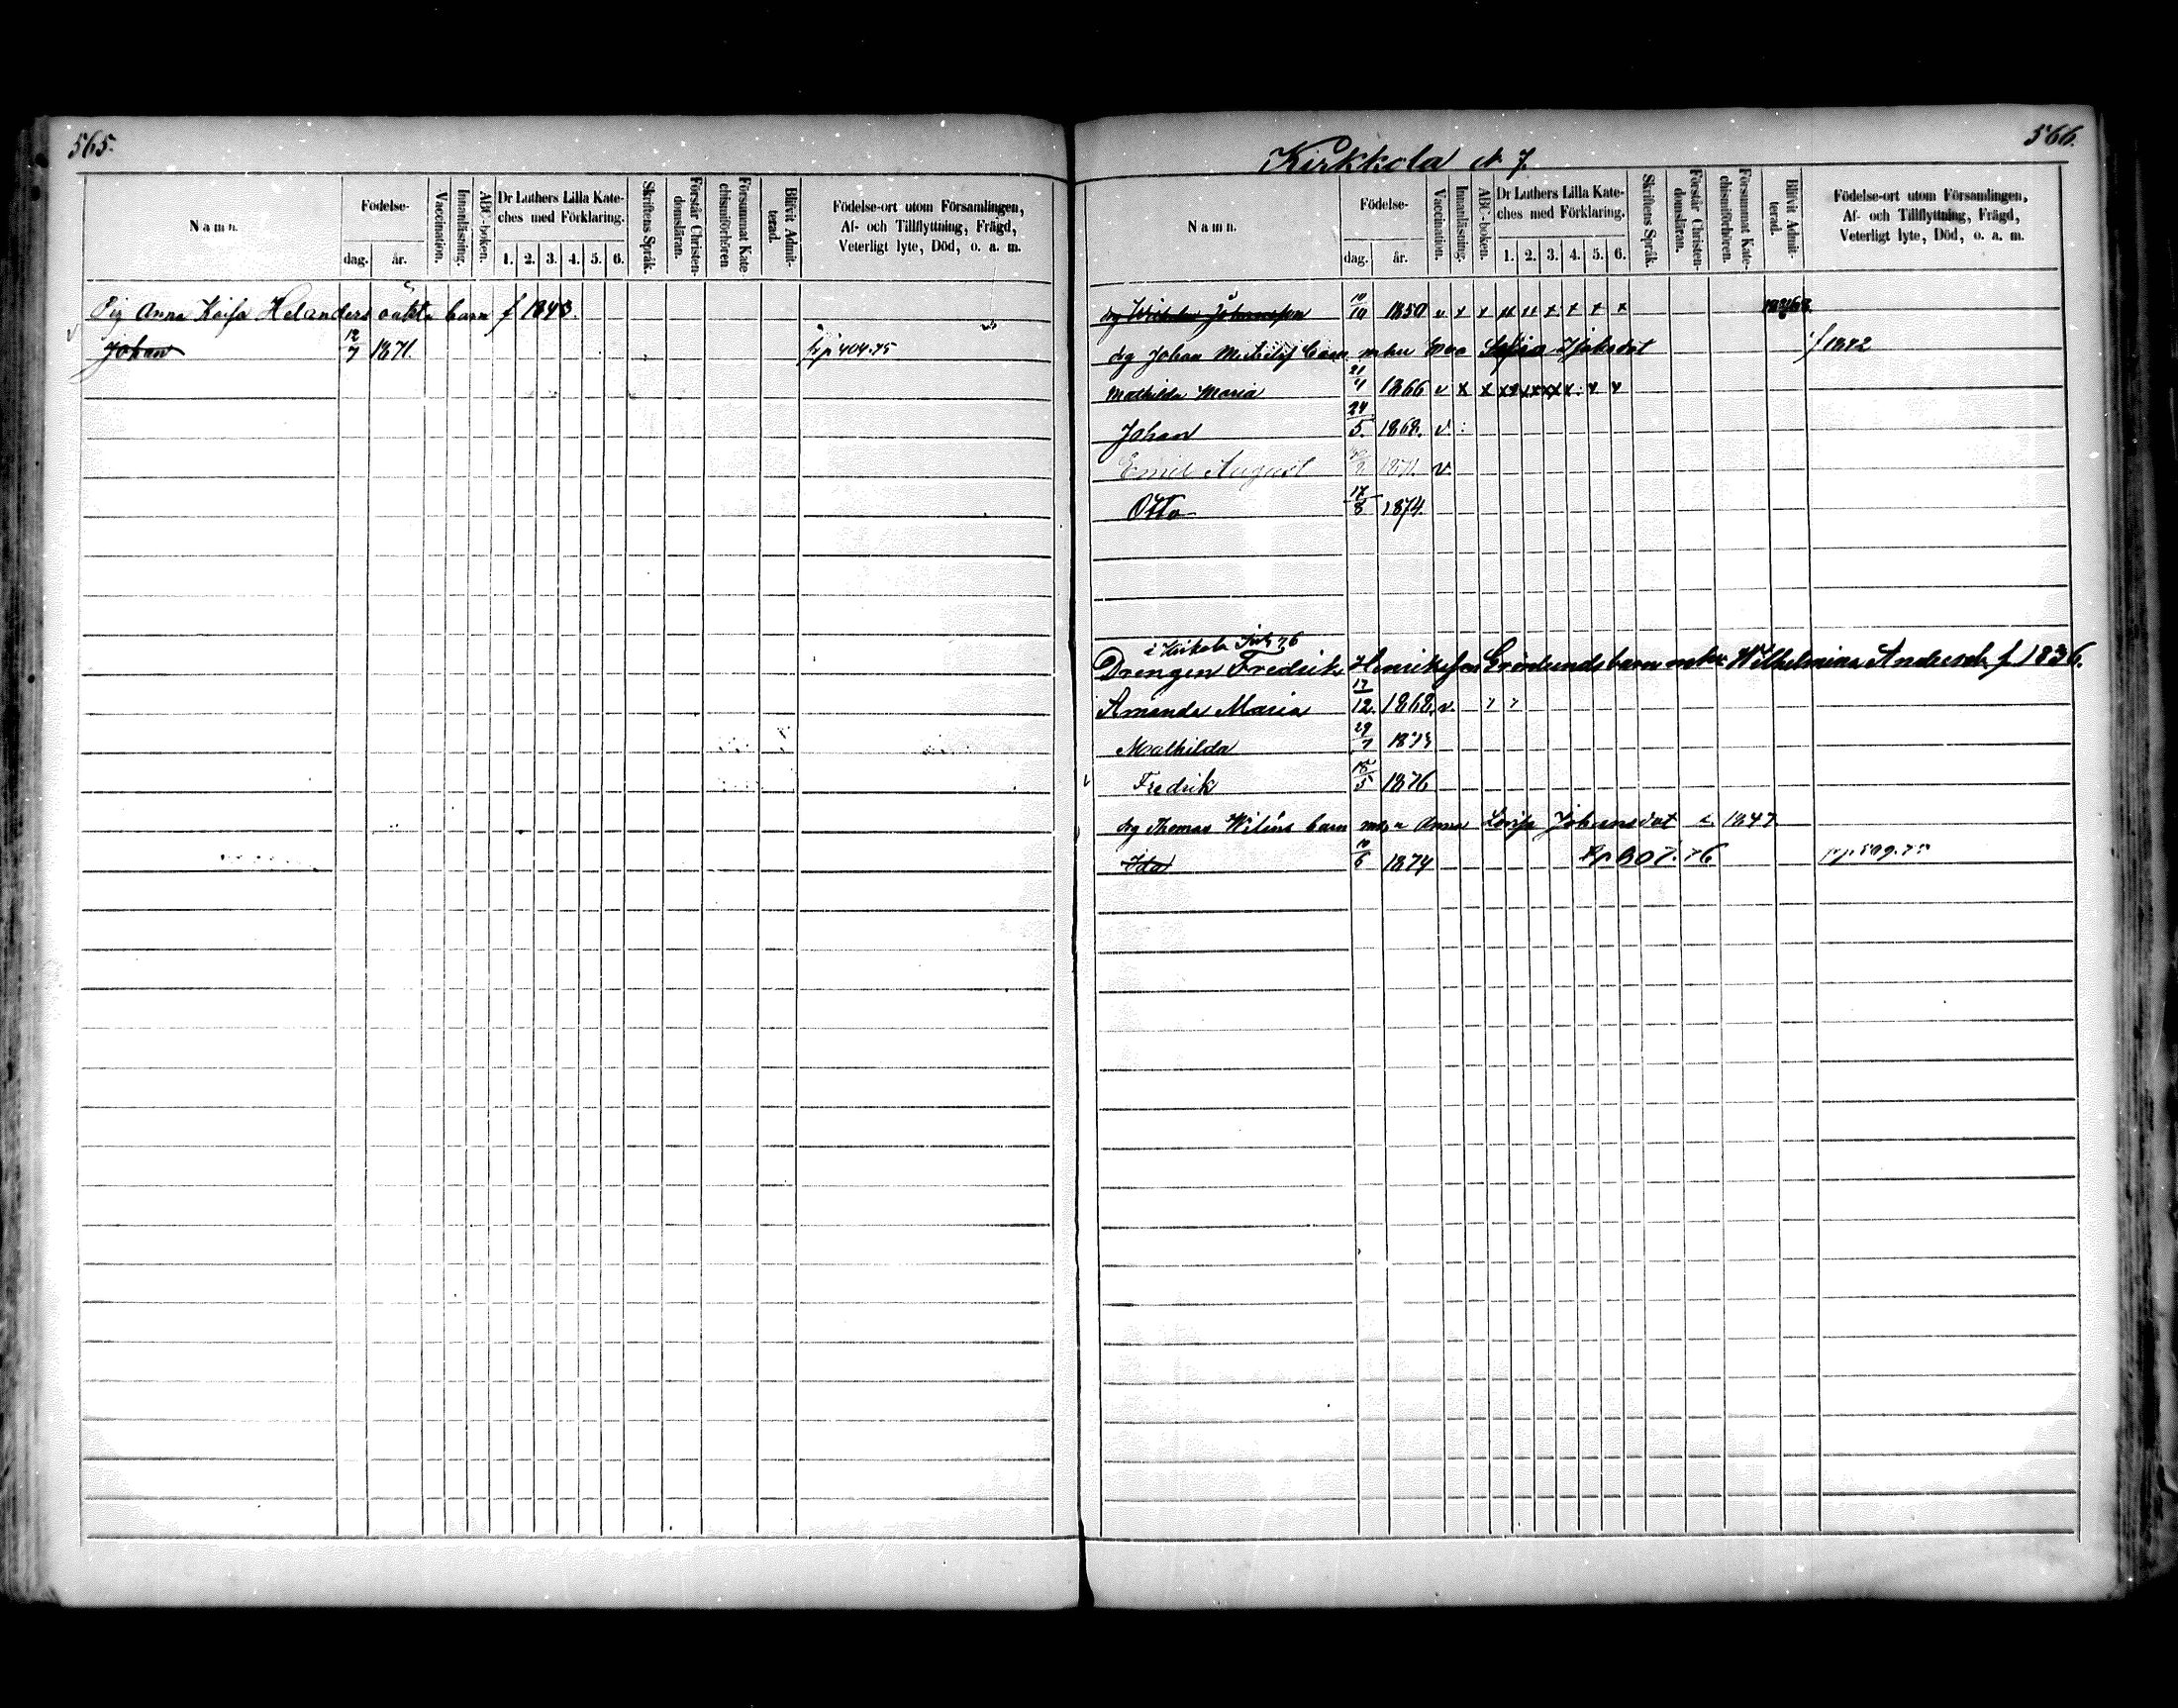 565.
Namn. Födelse- dag. år. Vaccination. Innanläsning. ABC-boken. Dr Luthers Lilla Kateches med Förklaring. 1. 2. 3. 4. 5. 6. Skriftens Språk. Förstår Christendomsläran. Försummat Katechismiförhören Blifvit Admitterad. Födelse-ort utom Församlingen, Af- och Tillflyttning, Frägd, Veterligt lyte, Död, o. a. m.
Pig Anna Kaisa Helanders oäkta barn f 1843.
v Johan 12/7 1871. 404.75
566.
Kirkkola N 7.
Namn. Födelse- dag. år. Vaccination. Innanläsning. ABC-boken. Dr Luthers Lilla Kateches med Förklaring. 1. 2. 3. 4. 5. 6. Skriftens Språk. Förstår Christendomsläran. Försummat Katechismiförhören. Blifvit Admitterad. Födelse-ort utom Församlingen, Af- och Tillflyttning, Frägd, Veterligt lyte, Död, o. a. m.
drg Wilhelm Johansson 10/10 1850 v x x x x x x x x
drg Johan barn Eva Sofia f 1842
Mathilda Maria 21/4 1866 v x x x x x x x x
Johan 24/5. 1868. v
Emil August 1871. v.
Otto 17/8 1874.
i Kirkola 76
Drengen Fredrik Henriksson Grönlunds barn Wilhelmina Andersdr f 1836.
Amanda Maria 17/12. 1868. v.
Mathilda 29/7 1873
v Fredrik 18/5 1876
drg Thomas barn Anna Lovisa Johansdot 1847
Ida 10/6 1874 307.76